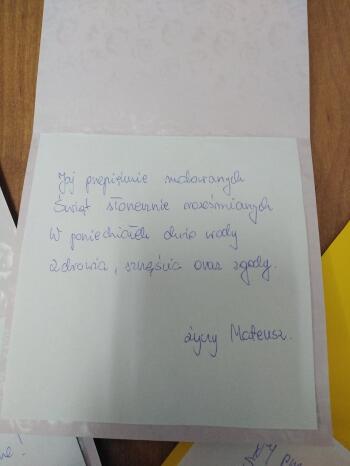 Jaj przepięknie malowanych
Świąt słonecznie roześmianych
W poniedziałek dużo wody
zdrowia, szczęścia oraz zgody.
życzy Mateusz.